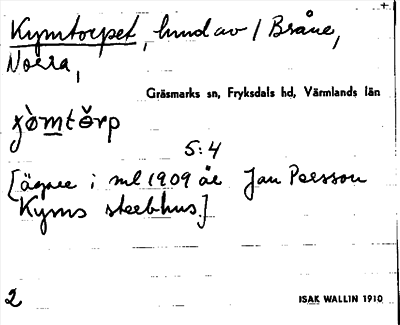 Kymtorpet, hmd av / Bråne,
Norra,
Gräsmarks sn, Fryksdals hd, Värmlands län
5:4
[ägare i ml 1909 är Jan Persson
Kyms sterbhus.]
2
ISAK WALLIN 1910